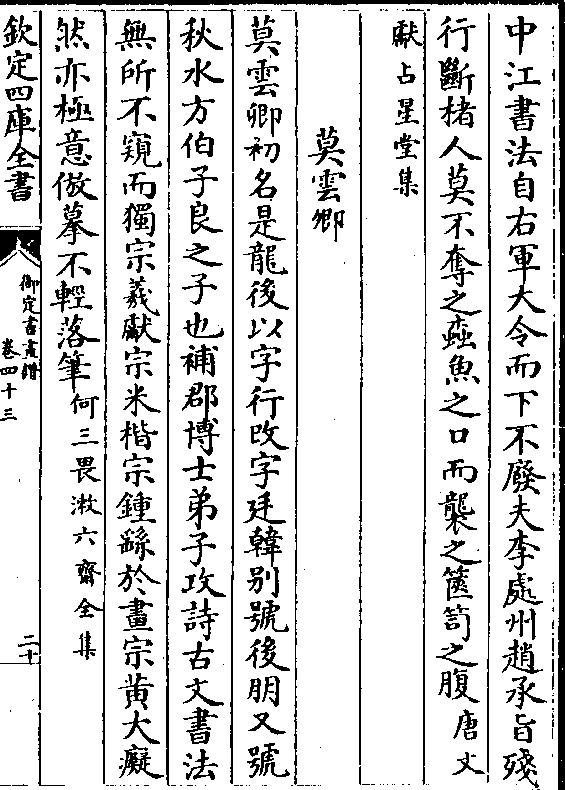 中江書法自右軍大令而下不廢夫李處州趙承旨殘
行斷楮人莫不奪之蟫魚之口而襲之篋笥之腹唐文
獻占星堂集
莫雲卿
莫雲卿初名是龍後以字行改字廷韓别號後朋又號
秋水方伯子良之子也補郡博士弟子攻詩古文書法
無所不窺而獨宗羲獻宗米楷宗鍾繇於畫宗黄大癡
然亦極意倣摹不輕落筆何三畏漱六齋全集
欽定四庫全書
御定書畫譜
卷四十三
二十